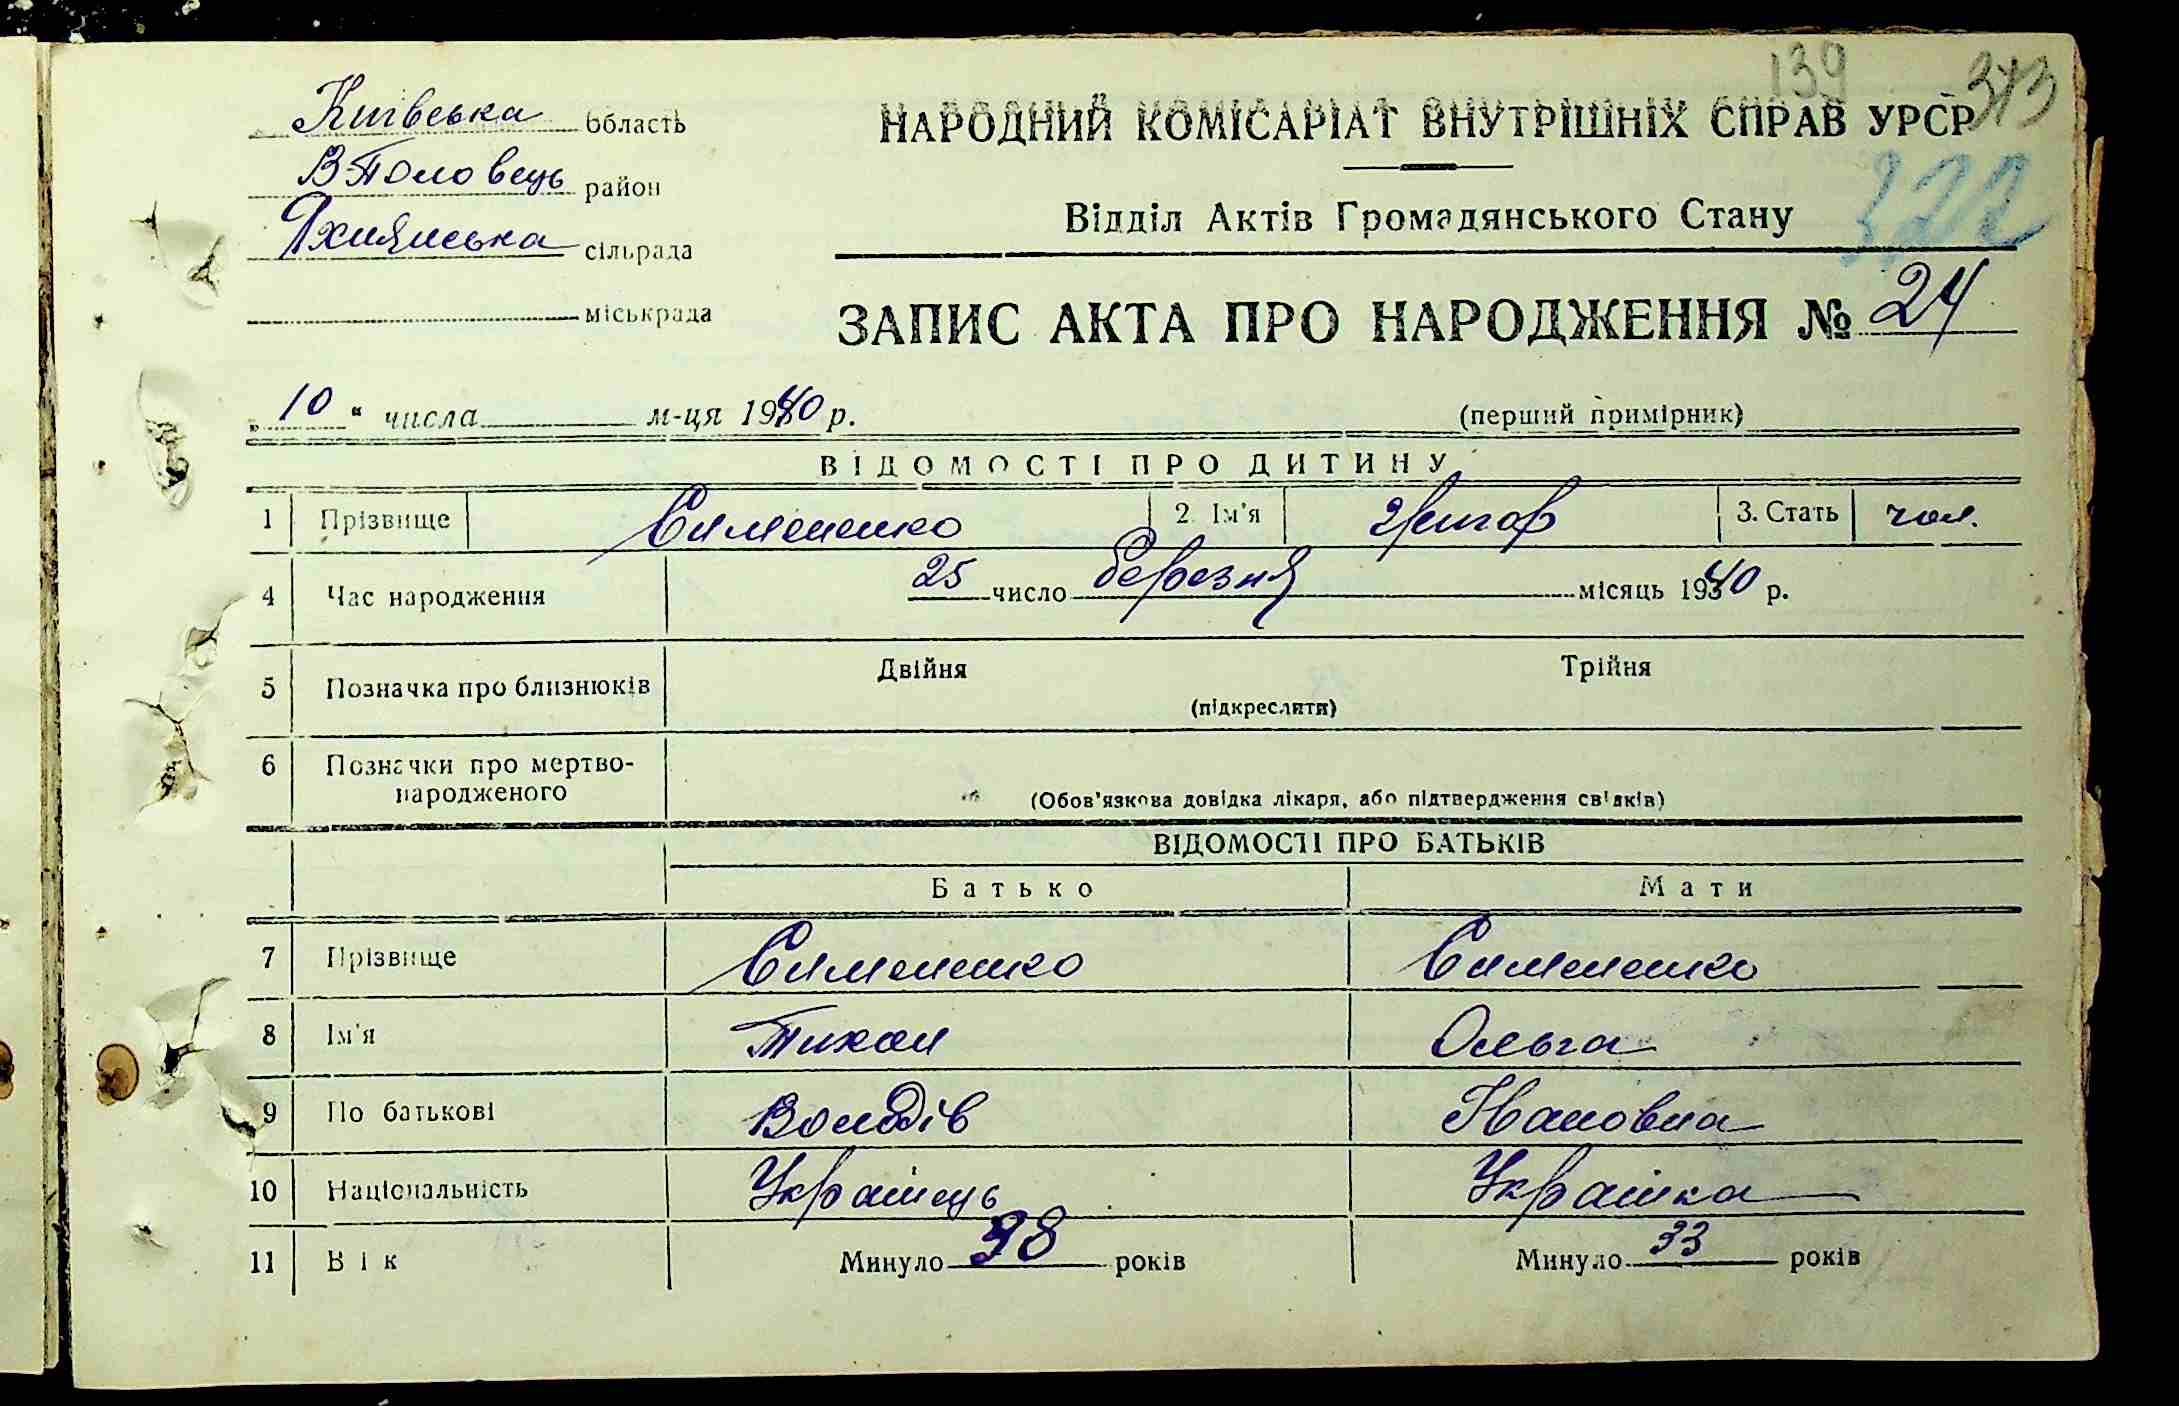 139 373
Київська область
НАРОДНИЙ КОМІСАРІАТ ВНУТРІШНІХ СПРАВ УРСР
В Половець район
322
Відділ Актів Громадянського Стану
Яхнянська сільрада
міськрада
ЗАПИС АКТА ПРО НАРОДЖЕННЯ № 24
„10“ числа м-ця 1940 р.
(перший примірник)
ВІДОМОСТІ ПРО ДИТИНУ
1 Прізвище Симоненко 2. Ім'я Григор 3. Стать чол.
4 Час народження 25 число березня місяць 1940 р.
5 Позначка про близнюків Двійня Трійня
(підкреслити)
6 Позначки про мертво-
народженого (Обов'язкова довідка лікаря, або підтвердження св'яків)
ВІДОМОСТІ ПРО БАТЬКІВ
Батько Мати
7 Прізвище Симоненко Симоненко
8 Ім'я Тихон Ольга
9 По батькові
10 Національність Українець Українка
11 Вік Минуло 38 років Минуло 33 років